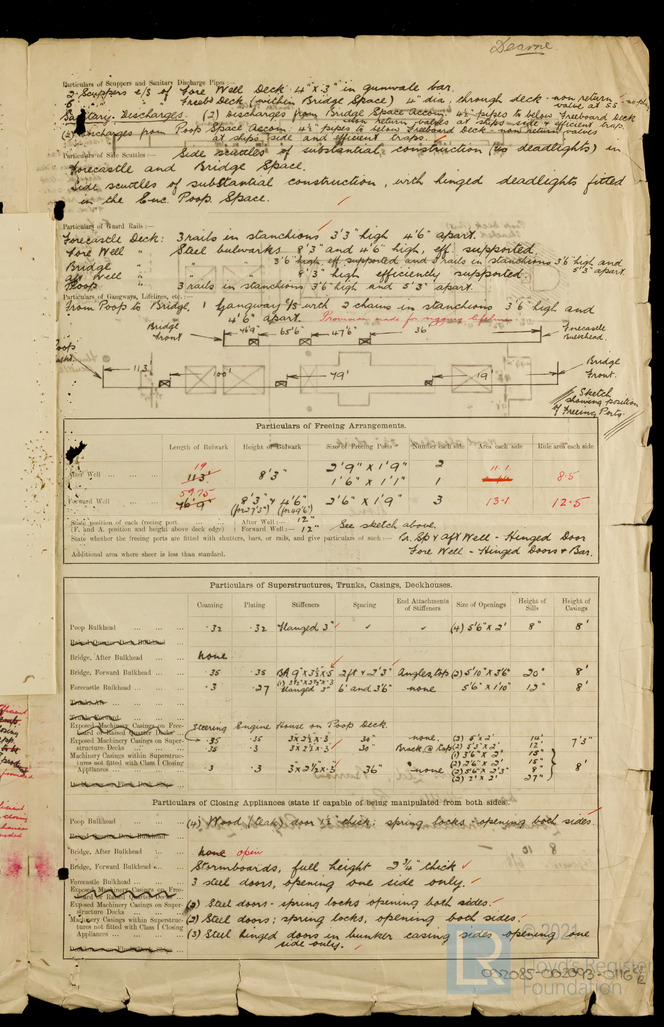 Dearne
Particulars of Scuppers and Sanitary Discharge Pipes :—
2 Scuppers e/s of Fore Well Deck 4" x 3" in gunwale bar.
6 " " Freebd Deck (within Bridge Space) 4" dia, through deck - non return valve at SS
Sanitary Discharges. (2) Discharges from Bridge Space Accom. 4½" pipes to below Freeboard Deck
non return valves at ships side & efficient trap.
(2) Discharges from Poop Space Accom. 4½" pipes to below Freeboard Deck - non return valves
at ships side and efficient traps.
Particulars of Side Scuttles :— Side scuttles of substantial construction (no deadlights) in
Forecastle and Bridge Space.
Side scuttles of substantial construction, with hinged deadlights fitted
in the Enc. Poop Space.
Particulars of Guard Rails :—
Forecastle Deck: 3 rails in stanchions 3'3" high 4'6" apart.
Fore Well " Steel bulwarks 8'3" and 4'6" high, eff supported.
Bridge " " " 3'6" high eff supported and 3 rails in stanchions 3'6" high and 5'3" apart.
Aft Well " " " 8'3" high efficiently supported.
Poop " 3 rails in stanchions 3'6" high and 5'3" apart.
Particulars of Gangways, Lifelines, etc. :—
From Poop to Bridge, 1 Gangway P/S with 2 chains in stanchions 3'6" high and
4'6" apart. Provision made for rigging lifelines
Bridge Front 65'6" 47'6" 36' Forecastle Bulkhead.
Poop 113 100' 79' 19' Bridge Front.
Sketch showing position of Freeing Ports.
Particulars of Freeing Arrangements.
Length of Bulwark Height of Bulwark Size of Freeing Ports Number each side Area each side Rule area each side
After Well 113' 19 8'3" 2'9" x 1'9" 2 11.1 8.5
1'6" x 1'1" 1
Forward Well 76'9" 59.75 8'3" & 4'6" 2'6" x 1'9" 3 13.1 12.5
(for 27'3") (for 49'6")
State position of each freeing port After Well :— 12" See sketch above.
(F. and A. position and height above deck edge) Forward Well :— 12"
State whether the freeing ports are fitted with shutters, bars, or rails, and give particulars of such :— Br. Sp & Aft Well - Hinged Door
Additional area where sheer is less than standard. Fore Well - Hinged Doors & Bar.
Particulars of Superstructures, Trunks, Casings, Deckhouses.
Coaming Plating Stiffeners Spacing End Attachments of Stiffeners Size of Openings Height of Sills Height of Casings
Poop Bulkhead .32 .32 Flanged 3" (4) 5'6" x 2' 8" 8'
Bridge, After Bulkhead none
Bridge, Forward Bulkhead .35 .35 BA 9" x 3½ x .5 2 ft & 2'3" Angles top (2) 5'10" x 3'6" 20" 8'
Forecastle Bulkhead .3 .27 Flanged 3" 6' and 3'6" none 5'6" x 1'10" 12" 8'
Steering Engine House on Poop Deck.
Exposed Machinery Casings on Freeboard or Raised Quarter Decks .35 .35 3 x 2½ x .3 30" none. (2) 5' x 2' 14" 7'3"
Exposed Machinery Casings on Superstructure Decks .35 .3 3 x 2½ x .3 30" Brack. @ top (2) 5'3" x 2' 12"
Machinery Casings within Superstructures not fitted with Class I Closing Appliances .3 .3 3 x 2½ x .3 36" none (1) 3'6" x 2' 15" 8'
(2) 2'6" x 2' 15"
(2) 5'6" x 2'3" 8"
(2) 2' x 2' 27"
Particulars of Closing Appliances (state if capable of being manipulated from both sides)
Poop Bulkhead (4) Wood (teak) door 1¾" thick: spring locks - opening both sides.
Bridge, After Bulkhead none open
Bridge, Forward Bulkhead Stormboards, full height 2¾" thick
Forecastle Bulkhead 3 steel doors, opening one side only.
Exposed Machinery Casings on Freeboard or Raised Quarter Decks
Exposed Machinery Casings on Superstructure Decks (2) Steel doors - spring locks opening both sides.
Machinery Casings within Superstructures not fitted with Class I Closing Appliances (2) Steel doors; spring locks, opening both sides.
(3) Steel hinged doors in bunker casing sides - opening one
side only.
© 2021
Lloyd's Register
Foundation
LR
002085-002093-0116